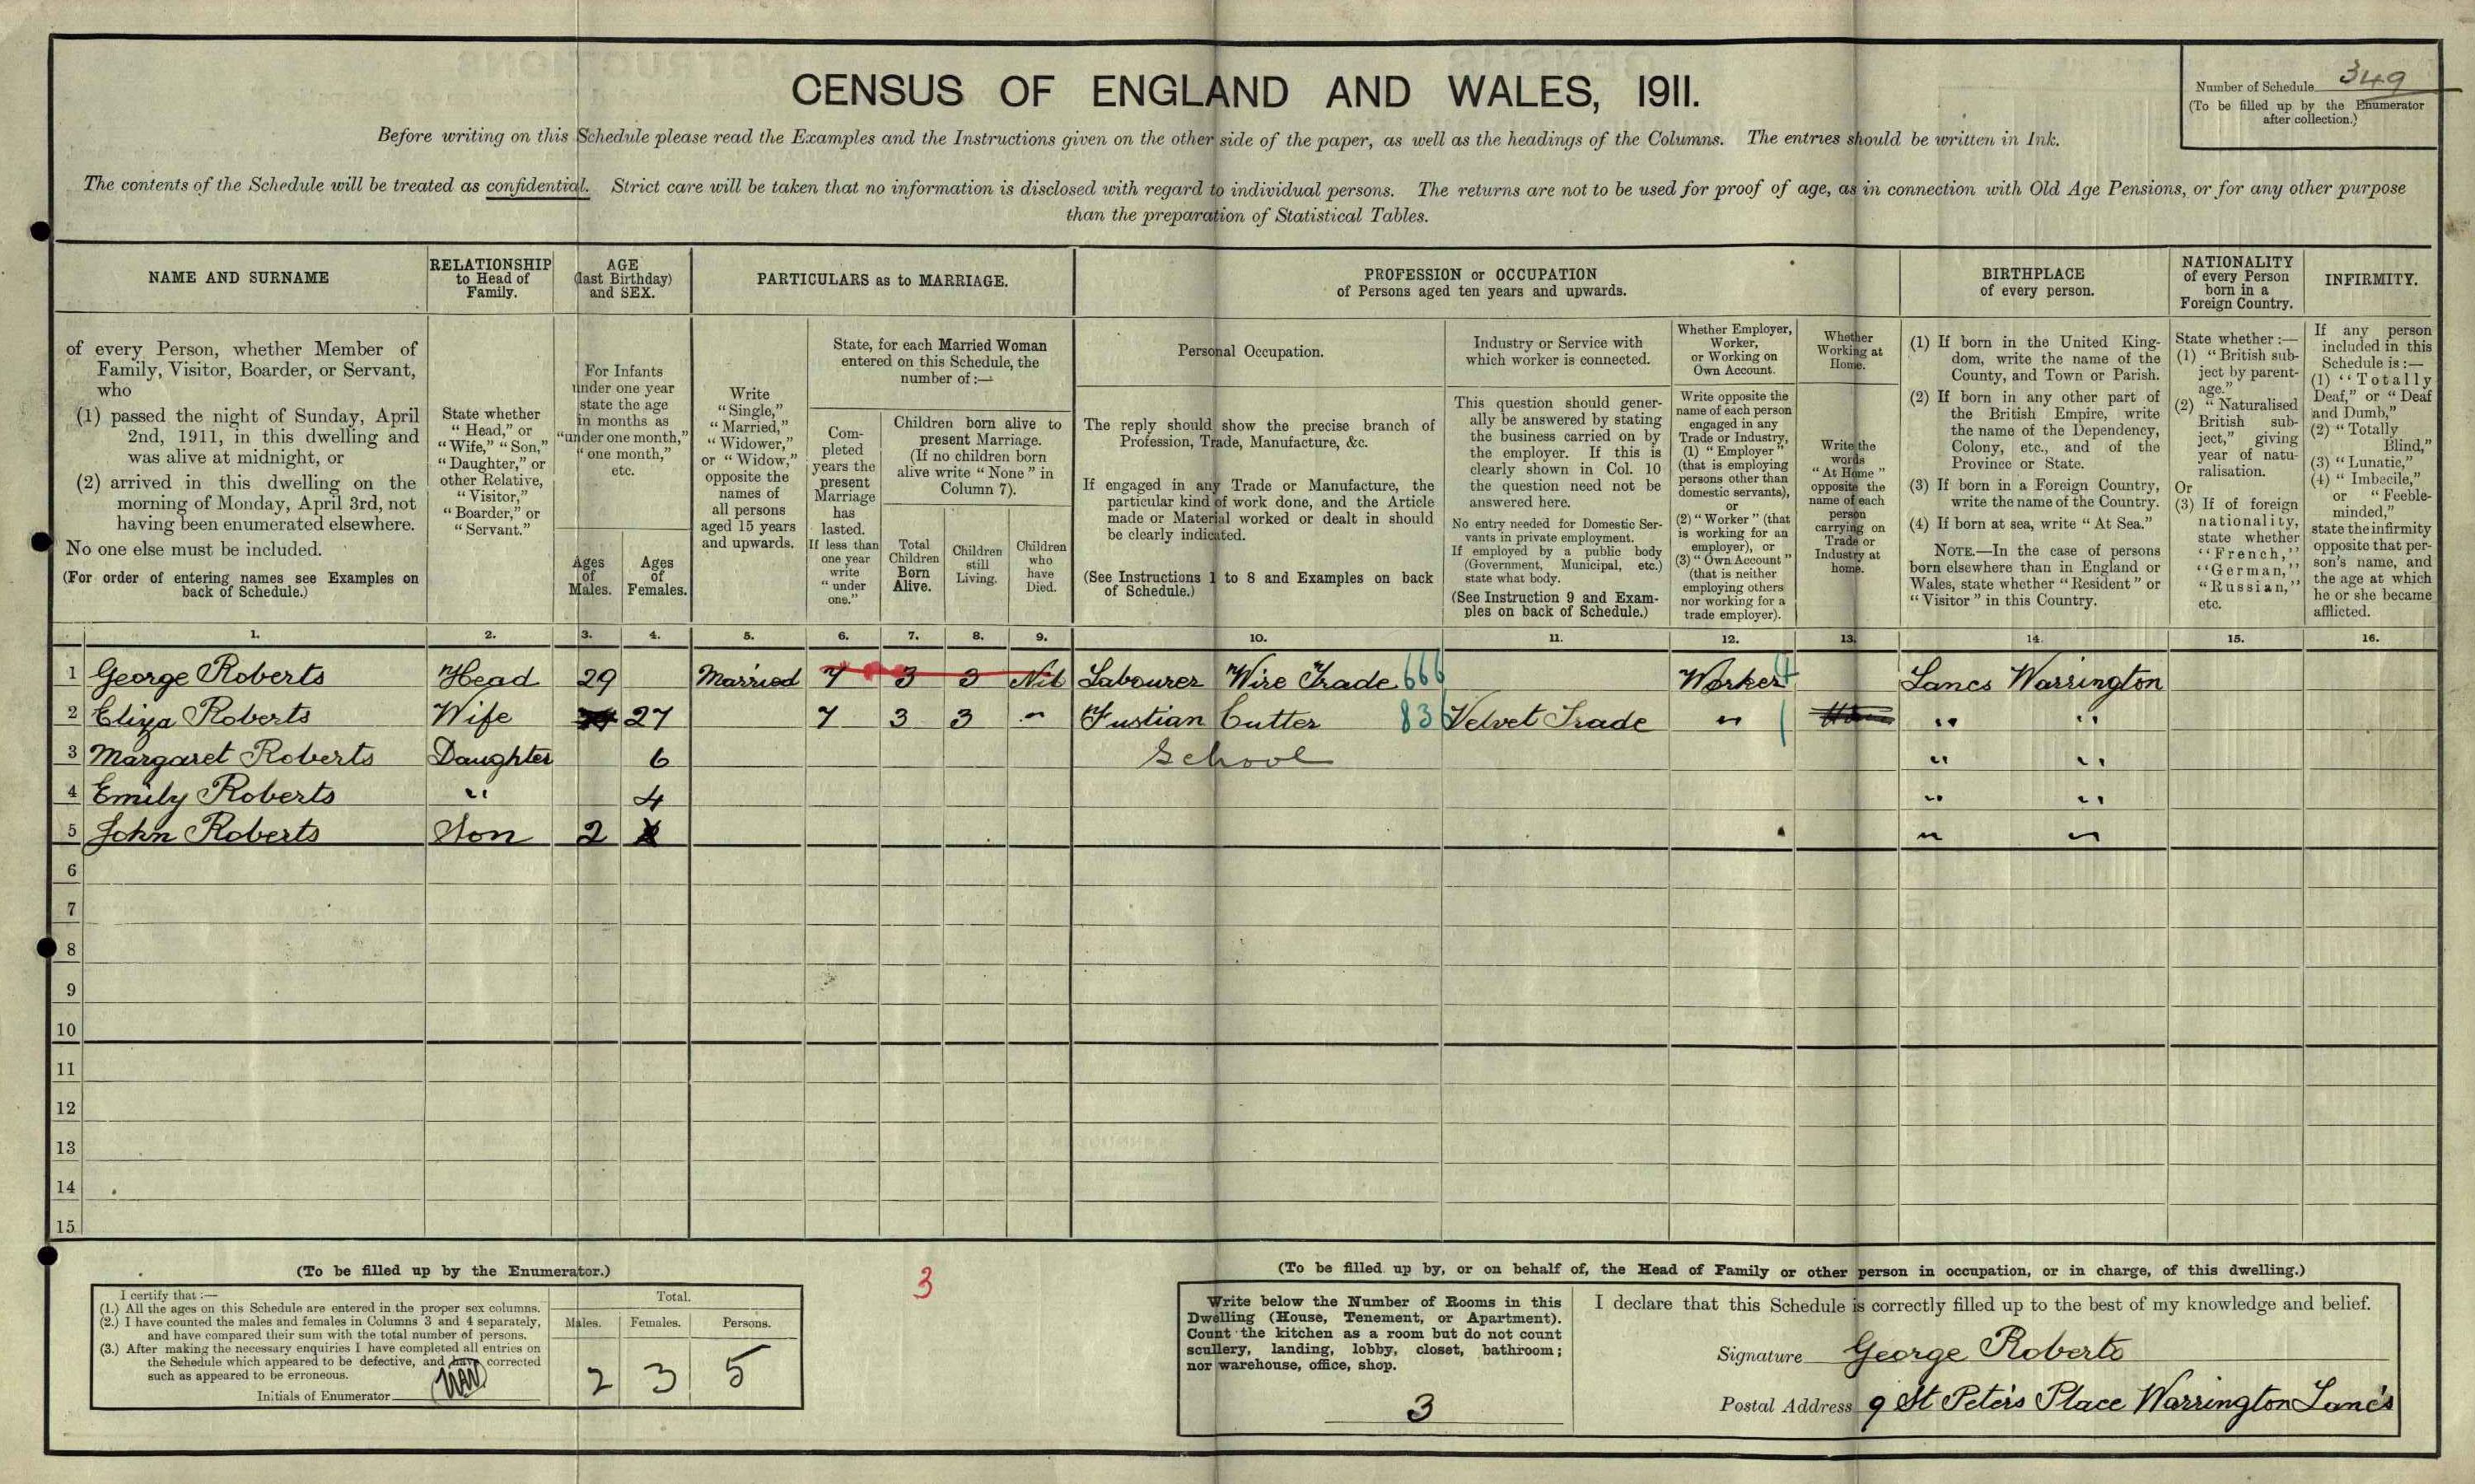 CENSUS OF ENGLAND AND WALES, 1911.
Number of Schedule 349
(To be filled up by the Enumerator
after collection.)
Before writing on this Schedule please read the Examples and the Instructions given on the other side of the paper, as well as the headings of the Columns. The entries should be written in Ink.
The contents of the Schedule will be treated as confidential. Strict care will be taken that no information is disclosed with regard to individual persons. The returns are not to be used for proof of age, as in connection with Old Age Pensions, or for any other purpose
than the preparation of Statistical Tables.
NAME AND SURNAME
of every Person, whether Member of
Family, Visitor, Boarder, or Servant,
who
(1) passed the night of Sunday, April
2nd, 1911, in this dwelling and
was alive at midnight, or
(2) arrived in this dwelling on the
morning of Monday, April 3rd, not
having been enumerated elsewhere.
No one else must be included.
(For order of entering names see Examples on
back of Schedule.)
RELATIONSHIP
to Head of
Family.
State whether
"Head," or
"Wife," "Son,"
"Daughter," or
other Relative,
"Visitor,"
"Boarder," or
"Servant."
AGE
(last Birthday)
and SEX.
For Infants
under one year
state the age
in months as
"under one month,"
"one month,"
etc.
Ages
of
Males.
Ages
of
Females.
PARTICULARS as to MARRIAGE.
Write
"Single,"
"Married,"
"Widower,"
or "Widow,"
opposite the
names of
all persons
aged 15 years
and upwards.
State, for each Married Woman
entered on this Schedule, the
number of :—
Com-
pleted
years the
present
Marriage
has
lasted.
If less than
one year
write
"under
one."
Children born alive to
present Marriage.
(If no children born
alive write "None" in
Column 7).
Total
Children
Born
Alive.
Children
still
Living.
Children
who
have
Died.
PROFESSION or OCCUPATION
of Persons aged ten years and upwards.
Personal Occupation.
The reply should show the precise branch of
Profession, Trade, Manufacture, &c.
If engaged in any Trade or Manufacture, the
particular kind of work done, and the Article
made or Material worked or dealt in should
be clearly indicated.
(See Instructions 1 to 8 and Examples on back
of Schedule.)
Industry or Service with
which worker is connected.
This question should gener-
ally be answered by stating
the business carried on by
the employer. If this is
clearly shown in Col. 10
the question need not be
answered here.
No entry needed for Domestic Ser-
vants in private employment.
If employed by a public body
(Government, Municipal, etc.)
state what body.
(See Instruction 9 and Exam-
ples on back of Schedule.)
Whether Employer,
Worker,
or Working on
Own Account.
Write opposite the
name of each person
engaged in any
Trade or Industry,
(1) "Employer"
(that is employing
persons other than
domestic servants),
or
(2) "Worker" (that
is working for an
employer), or
(3) "Own Account"
(that is neither
employing others
nor working for a
trade employer).
Whether
Working at
Home.
Write the
words
"At Home"
opposite the
name of each
person
carrying on
Trade or
Industry at
home.
BIRTHPLACE
of every person.
(1) If born in the United King-
dom, write the name of the
County, and Town or Parish.
(2) If born in any other part of
the British Empire, write
the name of the Dependency,
Colony, etc., and of the
Province or State.
(3) If born in a Foreign Country,
write the name of the Country.
(4) If born at sea, write "At Sea."
NOTE.—In the case of persons
born elsewhere than in England or
Wales, state whether "Resident" or
"Visitor" in this Country.
NATIONALITY
of every Person
born in a
Foreign Country.
State whether :—
(1) "British sub-
ject by parent-
age."
(2) "Naturalised
British sub-
ject," giving
year of natu-
ralisation.
Or
(3) If of foreign
nationality,
state whether
"French,"
"German,"
"Russian,"
etc.
INFIRMITY.
If any person
included in this
Schedule is :—
(1) "Totally
Deaf," or "Deaf
and Dumb,"
(2) "Totally
Blind,"
(3) "Lunatic,"
(4) "Imbecile,"
or "Feeble-
minded,"
state the infirmity
opposite that per-
son's name, and
the age at which
he or she became
afflicted.
1. 2. 3. 4. 5. 6. 7. 8. 9. 10. 11. 12. 13. 14. 15. 16.
1 George Roberts Head 29 Married 7 3 3 Nil Labourer Wire Trade 666 Worker Lancs Warrington
2 Eliza Roberts Wife 27 7 3 3 - Fustian Cutter 83 Velvet Trade " " "
3 Margaret Roberts Daughter 6 School " "
4 Emily Roberts " 4 " "
5 John Roberts Son 2 " "
6
7
8
9
10
11
12
13
14
15
(To be filled up by the Enumerator.)
I certify that :—
(1.) All the ages on this Schedule are entered in the proper sex columns.
(2.) I have counted the males and females in Columns 3 and 4 separately,
and have compared their sum with the total number of persons.
(3.) After making the necessary enquiries I have completed all entries on
the Schedule which appeared to be defective, and have corrected
such as appeared to be erroneous.
Initials of Enumerator
Total.
Males. Females. Persons.
2 3 5
3
(To be filled up by, or on behalf of, the Head of Family or other person in occupation, or in charge, of this dwelling.)
Write below the Number of Rooms in this
Dwelling (House, Tenement, or Apartment).
Count the kitchen as a room but do not count
scullery, landing, lobby, closet, bathroom;
nor warehouse, office, shop.
3
I declare that this Schedule is correctly filled up to the best of my knowledge and belief.
Signature George Roberts
Postal Address 9 St Peters Place Warrington Lancs